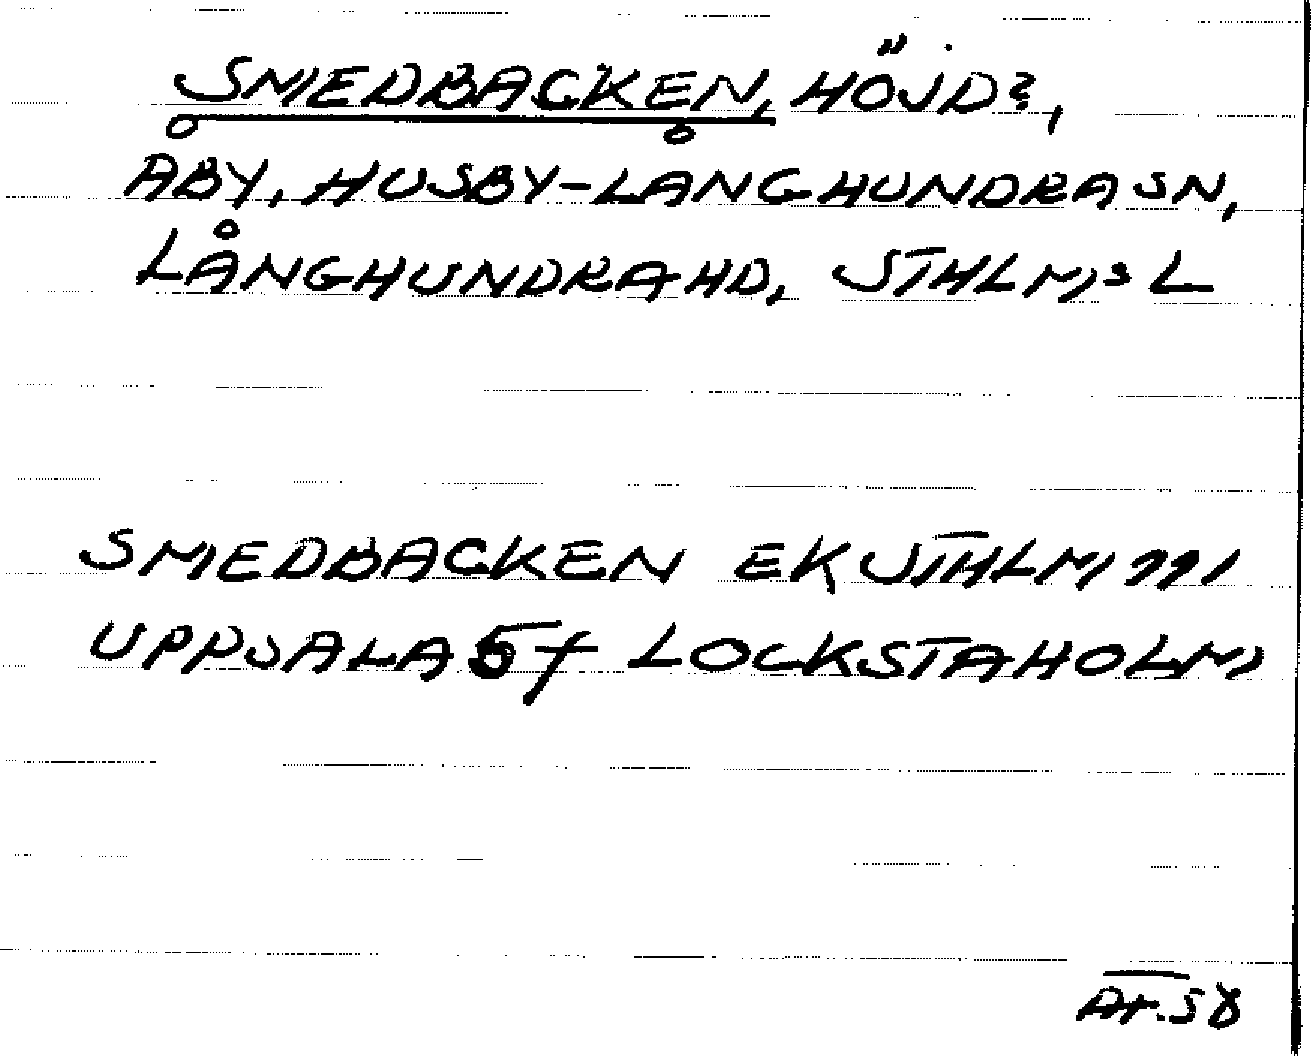 SMEDBACKEN, HÖJD?,
ÅBY, HUSBY-LÅNGHUNDRA SN,
LÅNGHUNDRA HD, STHLMS L
SMEDBACKEN EK STHLM 771
UPPSALA 5f LOCKSTAHOLM